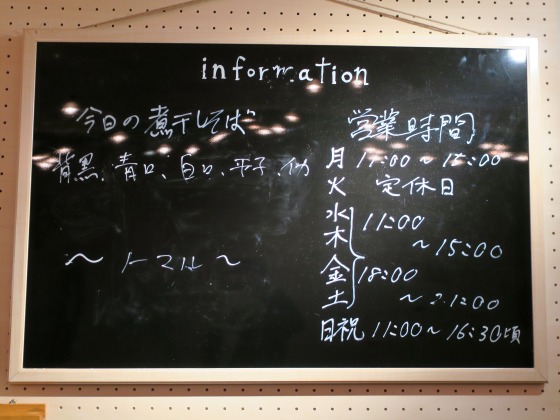 information
今日の煮干しそば
背黒、青口、白口、平子、
〜 ノーマル 〜
営業時間
月 11:00〜15:00
火 定休日
水
木
金
土
11:00
〜15:00
18:00
〜21:00
日祝 11:00〜16:30頃